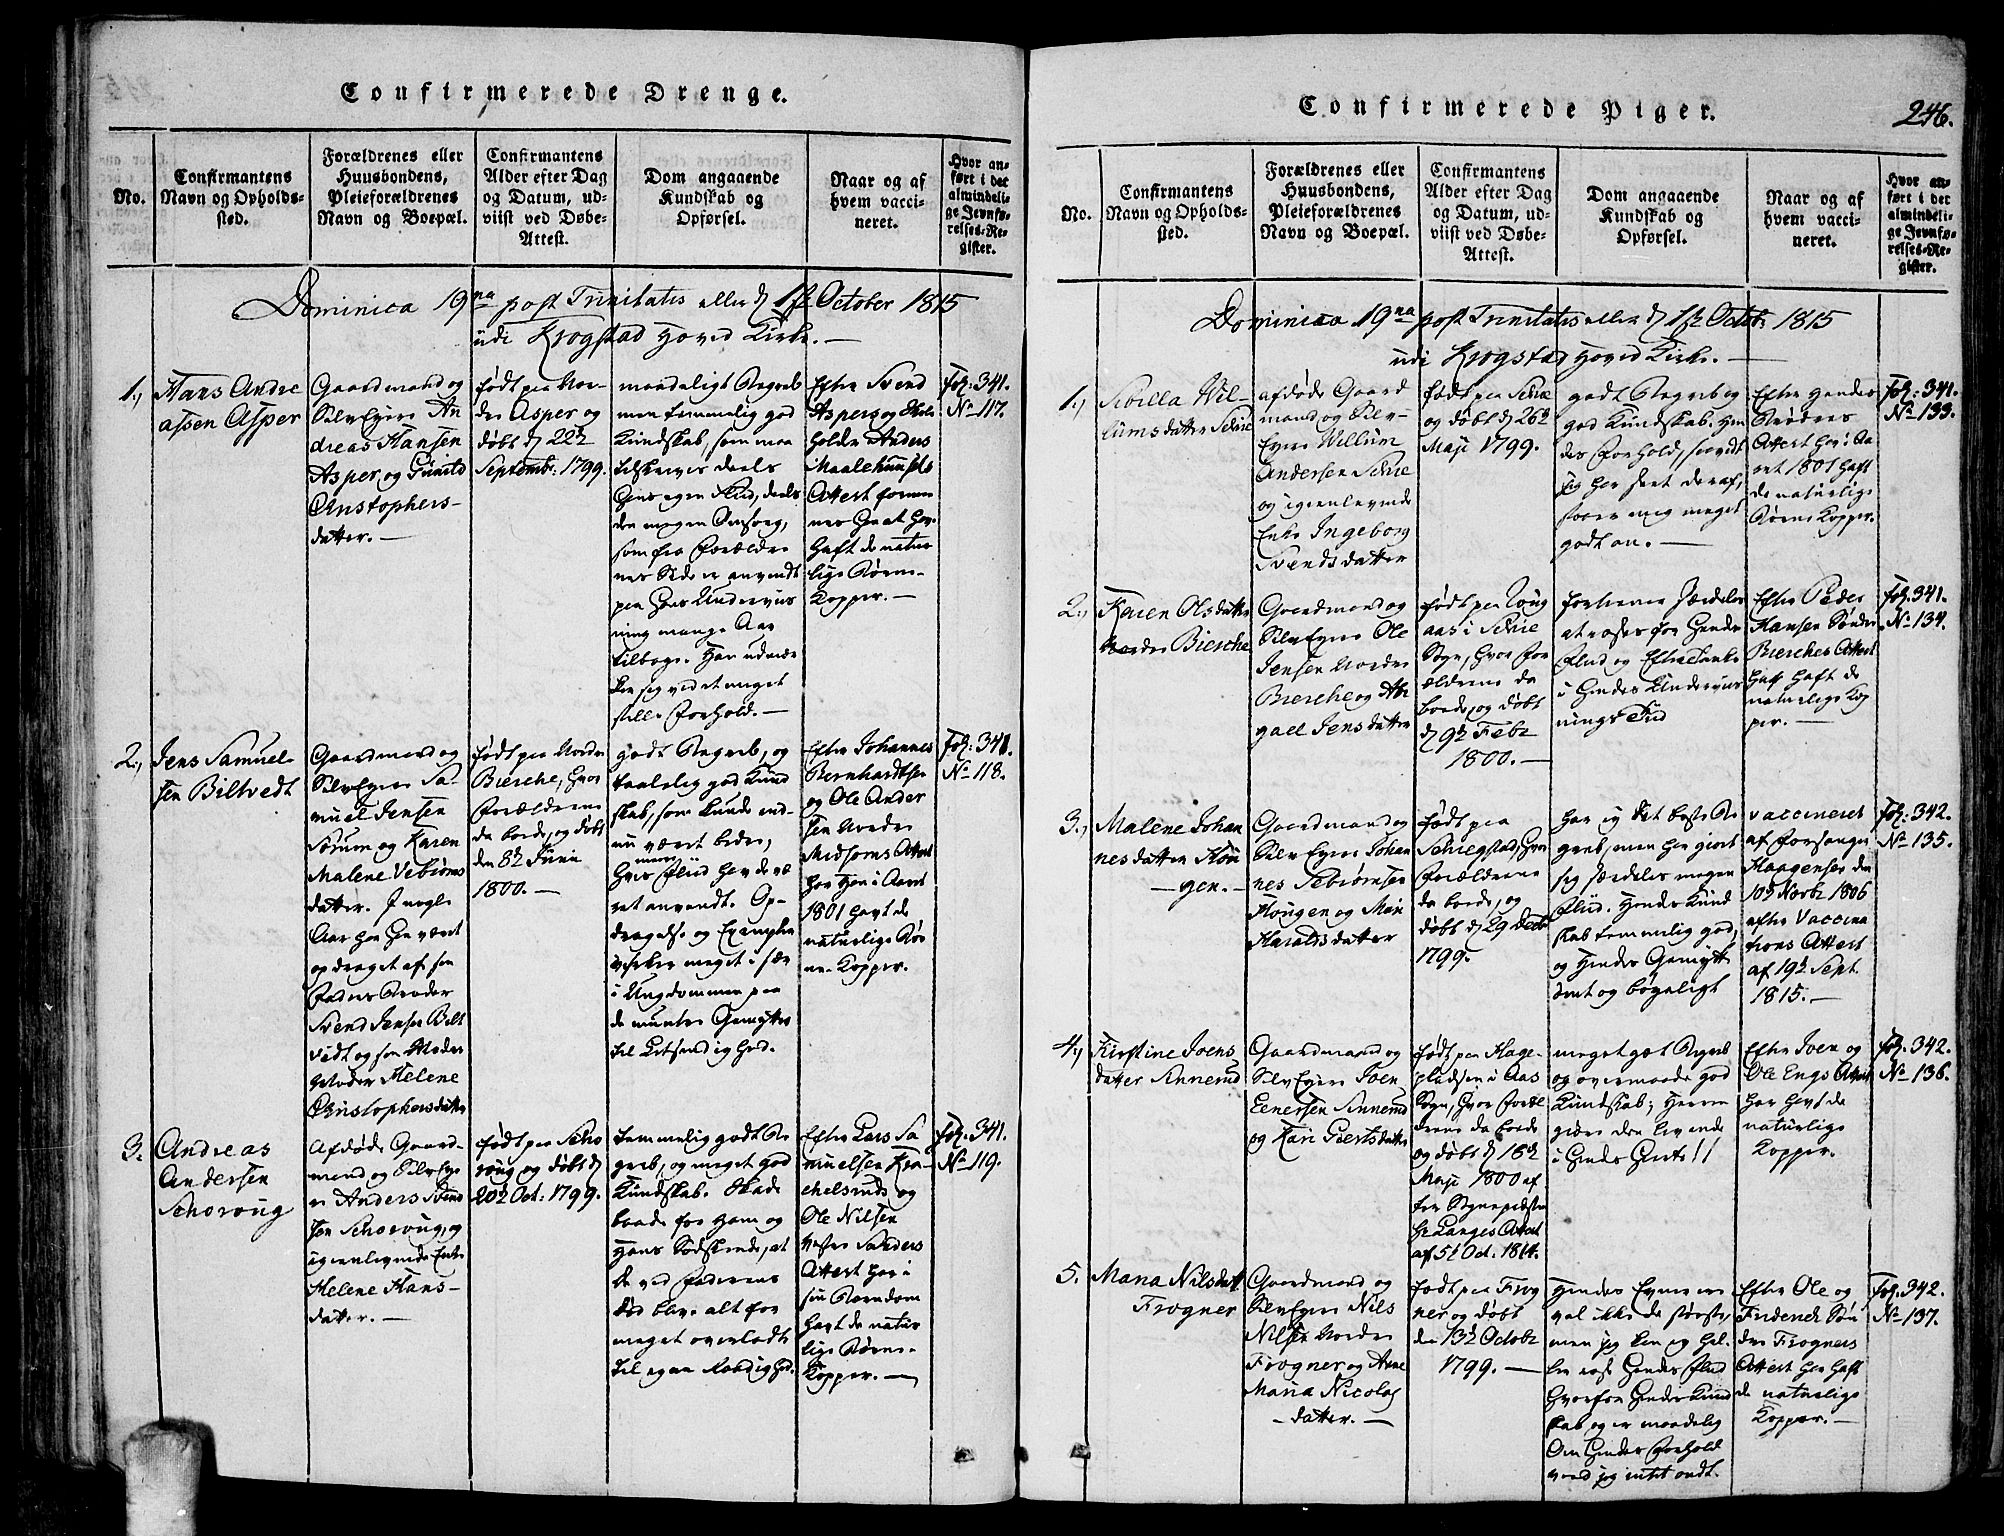 Confirmerede Drenge.
No.
Confirmantens
Navn og Opholds-
sted.
Forældrenes eller
Huusbondens,
Pleieforældrenes
Navn og Boepæl.
Confirmantens
Alder efter Dag
og Datum, ud-
viist ved Døbe-
Attest.
Dom angaaende
Kundskab og
Opførsel.
Naar og af
hvem vacci-
neret.
Hvor an-
ført i det
almindeli-
ge Jevnfø-
relses-Re-
gister.
Dominica 19na post Trinitatis eller d 1ste October 1815
udi Krogstad Hoved Kirke. —
1.,
Hans Andre
assen Asper
Gaardmand og
SelvEyer An
dreas Hansen
Asper og Gunild
Christophers-
datter. —
født paa Nor-
dre Asper og
døbt d 22de
Septembr: 1799.
maadeligt Begreb
men temmelig god
Kundskab, som maa
tilskrives deels
Hans egen Flid, deels
den megen Omsorg,
som fra Forældre
nes Side er anvendt
paa Hans Underviis
ning mange Aar
tilbage. Han udmær
ker sig ved et meget
stille Forhold. —
Efter Svend
Aspers og
Anders
Attest
haft de natur
lige Børne-
Kopper. —
Fol: 341.
No 117.
2.,
Jens Samuel-
sen Biltvedt
Gaardmand og
SelvEyer Sa-
muel Jensen
Sørum og Karen
Malene Vebiørns
datter. I nogle
Aar har Han været
opdraget af sin
Faders Broder
Svend Jensen Bilt
vedt og sin Moder
Helene
Christophersdatter
født paa Nordre
Biersche, hvor
Forældrene
da boede, og døbt
den 8de Junii
1800. —
godt Begreb, og
taalelig god Kund
skab, som kunde end-
nu været bedre,
hvis meer Flid havde væ
ret anvendt. Op-
dragelse og Exempler
virker meget i sær
i Ungdommen paa
de muntre Gemytter
til Letsindighed.
Efter Johannes
Bernhardtsen
og Ole Ander
sen Nordre
Attest
har Han i Aaret
1801 havt de
naturlige Bør
ne-Kopper.
Fol: 341.
No 118.
3.
Andreas
Andersen
Schoroug
Afdøde Gaard-
mand og SelvEye
r Anders Svend
sen Schoroug, og
igienlevende Enke
Helene Hans-
datter. —
født paa Scho
roug og døbt d
20de Oct: 1799.
temmelig godt Be
greb, og meget god
Kundskab. Skade
baade for Ham og
Hans Sødskende, at
de ved Faderens
Død blev alt for
meget overladt
til egen Raadighed.
Efter Lars Sa
muelsen Kra-
chelsruds og
Ole Nilsen
Attest har i
sin Barndom
havt de natur
lige Børne-
Kopper. —
Fol: 341.
No 119.
Confirmerede Piger.
246.
No.
Confirmantens
Navn og Opholds-
sted.
Forældrenes eller
Huusbondens,
Pleieforældrenes
Navn og Boepæl.
Confirmantens
Alder efter Dag
og Datum, ud-
viist ved Døbe-
Attest.
Dom angaaende
Kundskab og
Opførsel.
Naar og af
hvem vacci-
neret.
Hvor an-
ført i det
almindeli-
ge Jevnfø-
relses-Re-
gister.
Dominica 19na post Trinitatis eller d 1ste Octob: 1815
udi Krogstad Hoved Kirke. —
1.,
Sibilla Wil-
lumsdatter Schie
afdøde Gaard
mand og Selv-
Eyer Willum
Andersen Schie
og igienlevende
Enke Ingeborg
Svendsdatter
født paa Schie
og døbt d 26de
Maji 1799.
godt Begreb og
god Kundskab. Hen
des Forhold, saavidt
jeg har seet deraf,
staaer mig meget
godt an. —
Efter Hendes
Broders
Attest har i Aa
ret 1801 haft
de naturlige
Børne Kopper.
Fol: 341.
No 133.
2.,
Karen Olsdatter
Nordre Biersche
Gaardmand og
SelvEyer Ole
Jensen Nordre
Biersche og Ab
gael Jensdatter
født paa Houg
aas i Schie
Sogn, hvor For
ældrene da
boede, og døbt
d 9de Febr
1800. —
fortiener særdeles
at roses for Hendes
Flid og Eftertanke
i Hendes Underviis
nings Tid
Efter Peder
Hansen Søndre
Biersches Attest
haft de
naturlige Kop
per. —
Fol. 341.
No 134.
3.,
Malene Johan
nesdatter Hou
gen. —
Gaardmand og
SelvEyer Johan
nes Sebiørnsen
Hougen og Mari
Haralsdatter
født paa
Schiegstad, hvor
Forældrene
da boede, og
døbt d 29 Decbr
1799.
har ej det beste Be
greb, men har giort
sig særdeles megen
Flid. Hendes Kund
skab temmelig god,
og Hendes Gemytt
ømt og bøyeligt
vaccineret
af Forsanger
Haagensen den
10de Novbr 1806
efter Vaccina
tions Attest
af 19de Sept.
1815. —
Fol: 342.
No 135.
4.,
Kirstine Joens
datter Annerud
Gaardmand og
SelvEyer Joen
Eenersen Annerud
og Kari Geertsdatter
født paa Hage-
pladsen i Aas
Sogn, hvor Foræl
drene da boede
og døbt d 18de
Maji 1800 af
før Sognepræsten
Hr Langes Attest
af 5te Oct. 1814.
meget got Begreb
og overmaade god
Kundskab; Herren
giøre den levende
i Hendes Hierte!!
Efter Joen og
Ole Engs Attest
har havt de
naturlige
Kopper.
Fol. 342.
No 136.
5.
Maria Nilsdatt
Frogner
Gaardmand og
SelvEyer Nils
Nilsen Nordre
Frogner og Anne
Maria Nicolay
-datter. —
født paa Frog
ner og døbt
den 13de Octobr
1799. —
Hendes Evner ere
vel ikke de største,
men jeg kan og hel-
ler rose Hendes Flid
hvorfor Hendes Kund
skab og er maadelig
Om Hendes Forhold
veed jeg intet ondt.
Efter Ole og
Friderich Søn
dre Frogners
Attest har haft
de naturlige
Kopper. —
Fol. 342.
No 137.